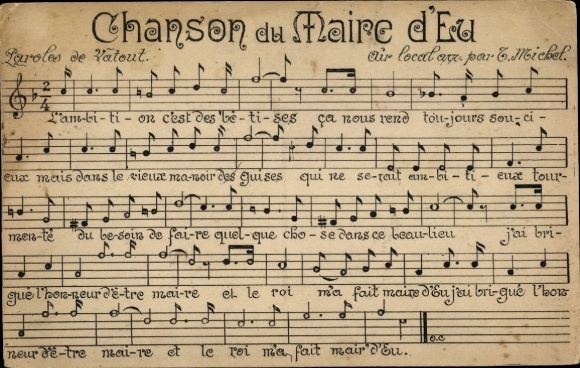 Chanson du Maire d'Eu
Paroles de Vatout. Air local arr. par T. Michel.
2
4
L'am-bi-ti-on c'est des bê-ti-ses ça nous rend tou-jours sou-ci-
eux mais dans le vieux ma-noir des guises qui ne se-rait am-bi-ti-eux tour-
men-té du be-soin de fai-re quel-que cho-se dans ce beau-lieu j'ai bri-
gué l'hon-neur d'ê-tre mai-re et le roi m'a fait maire d'Eu j'ai bri-gué l'hon-
neur d'ê-tre mai-re et le roi m'a fait mair' d'Eu.
D.C